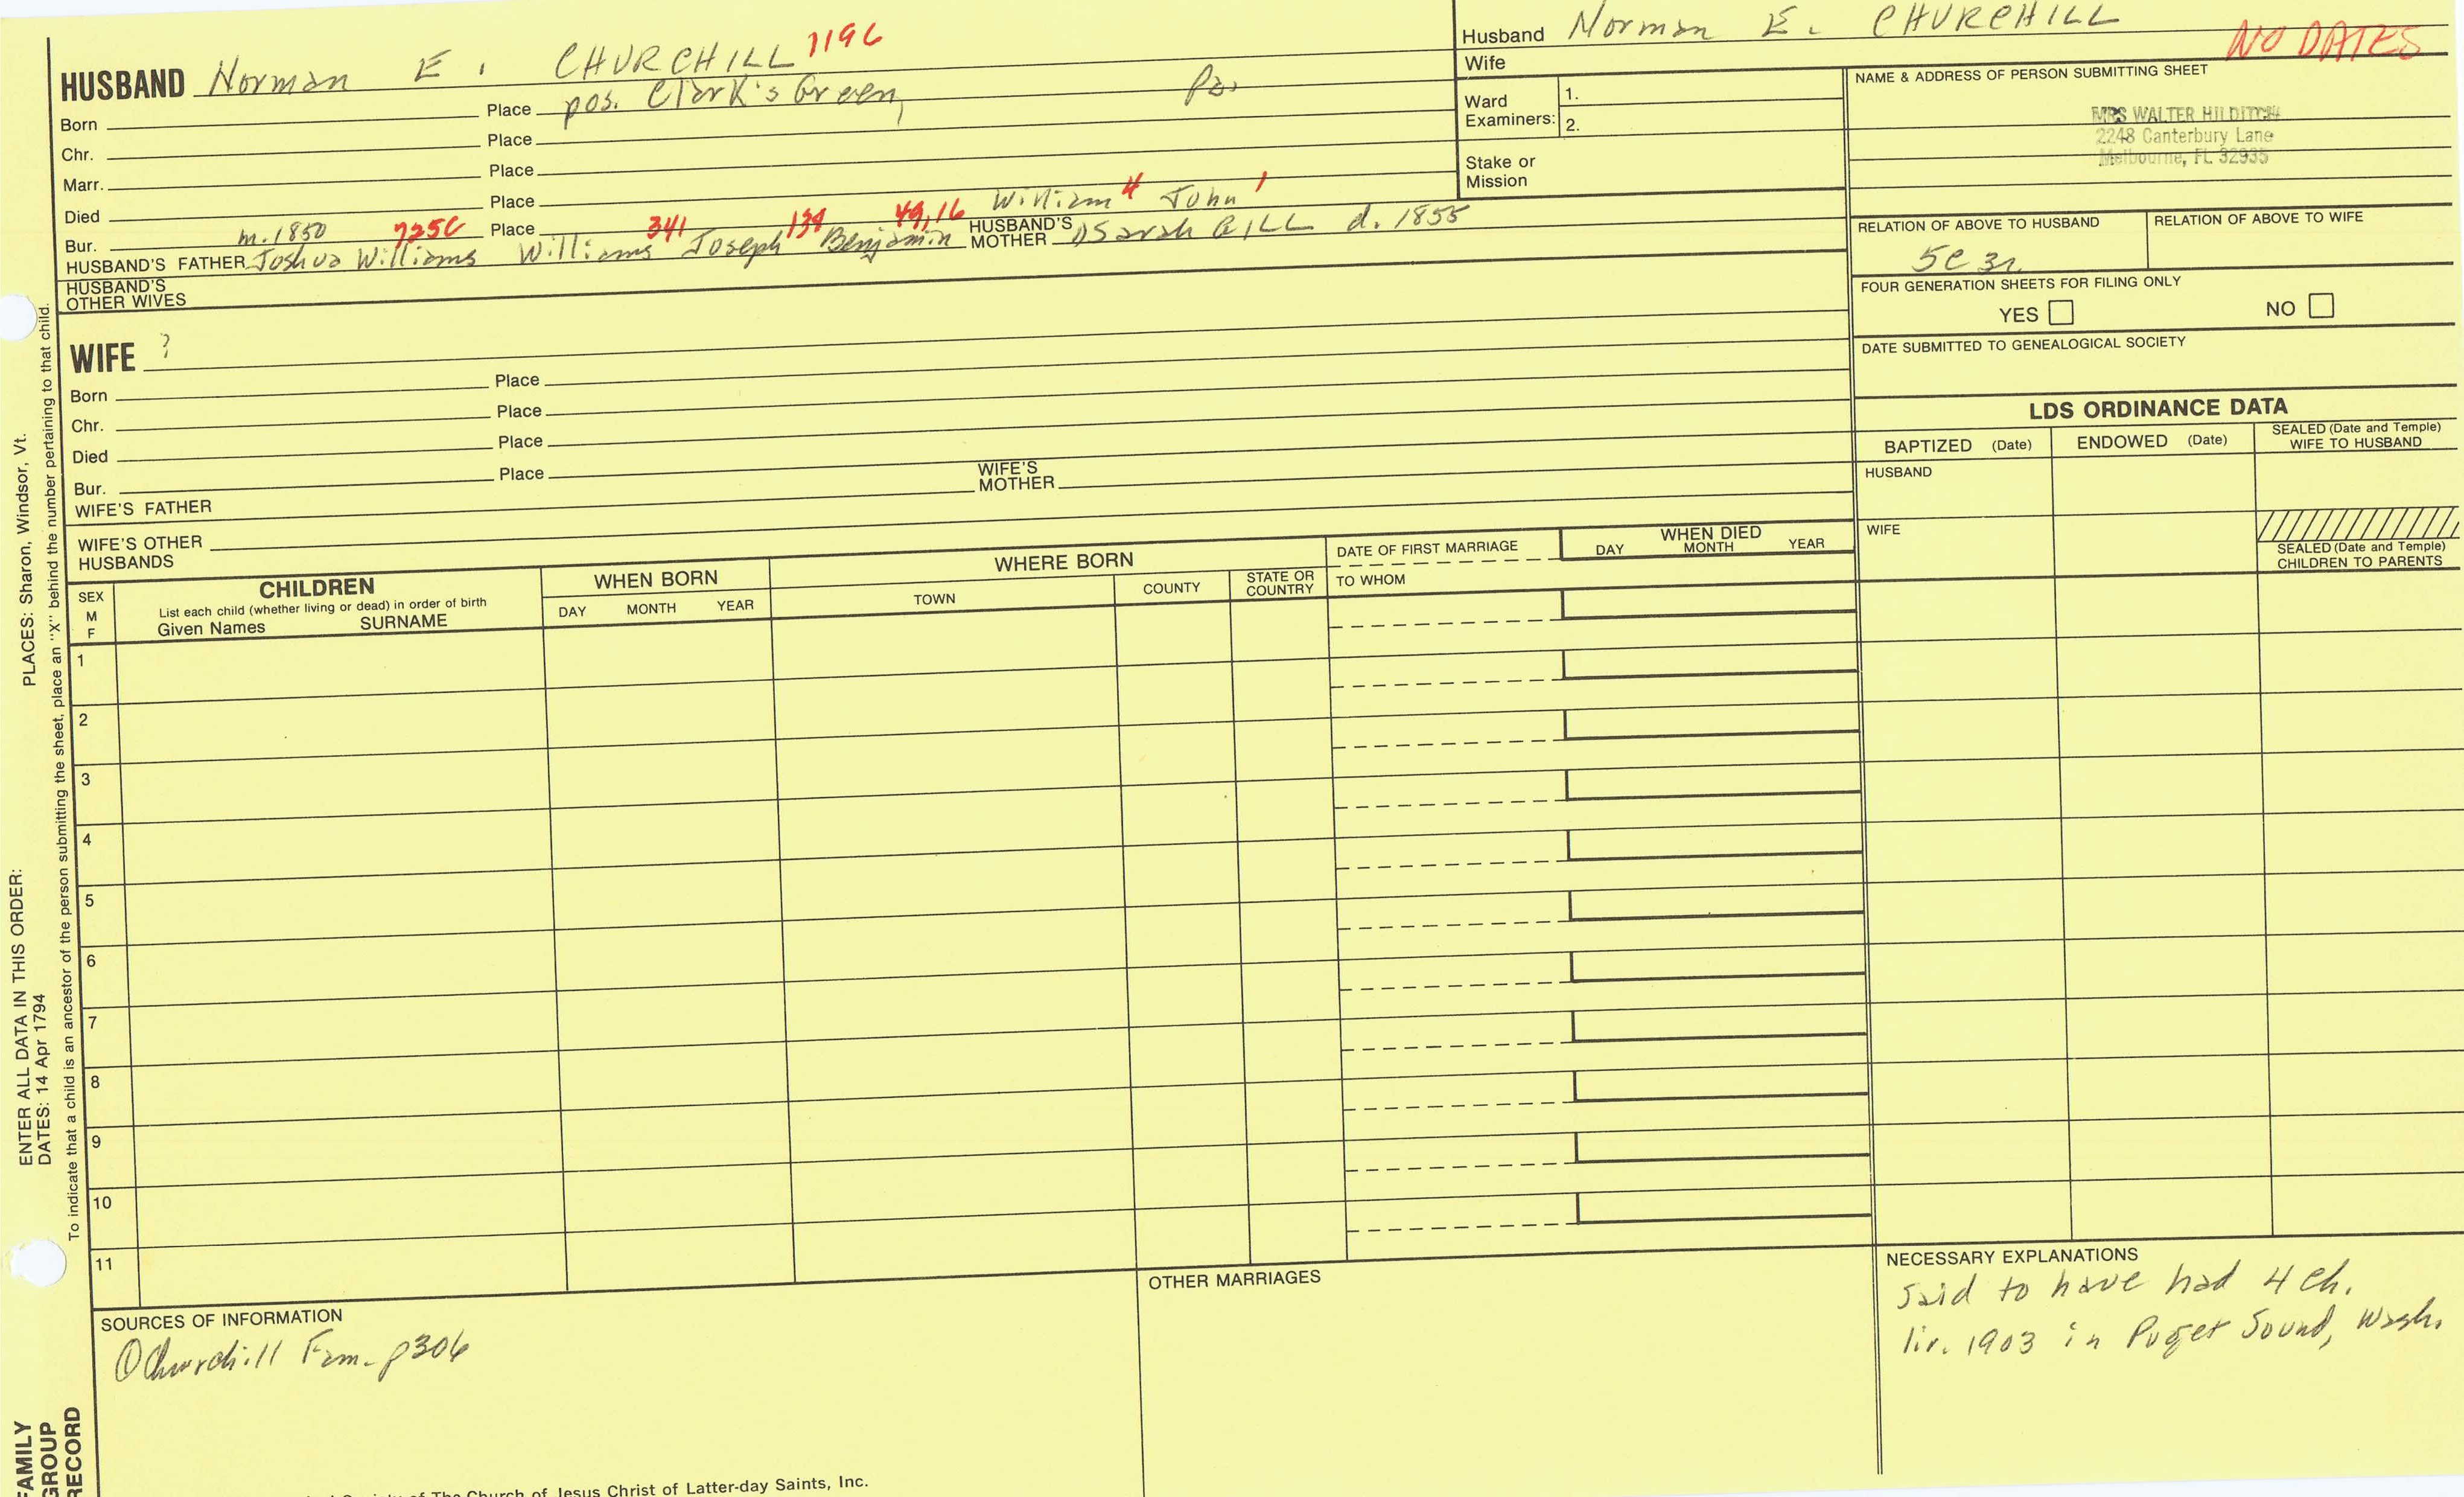 HUSBAND Norman E. CHURCHILL 1196
Born Place pos. Clark's Green, Pa.
Chr. Place
Marr. Place
Died Place
Bur. Place
m. 1850 725C 341 134 49,16 William 4 John 1
HUSBAND'S FATHER Joshua Williams Williams Joseph Benjamin HUSBAND'S MOTHER Sarah GILL d. 1855
HUSBAND'S OTHER WIVES
WIFE ?
Born Place
Chr. Place
Died Place
Bur. Place
WIFE'S FATHER WIFE'S MOTHER
WIFE'S OTHER HUSBANDS
Husband Norman E. CHURCHILL
NO DATES
Wife
Ward Examiners: 1.
2.
Stake or Mission
NAME & ADDRESS OF PERSON SUBMITTING SHEET
MRS WALTER HILDITCH
2248 Canterbury Lane
Melbourne, FL 32935
RELATION OF ABOVE TO HUSBAND RELATION OF ABOVE TO WIFE
5c 3r
FOUR GENERATION SHEETS FOR FILING ONLY
YES NO
DATE SUBMITTED TO GENEALOGICAL SOCIETY
LDS ORDINANCE DATA
BAPTIZED (Date) ENDOWED (Date) SEALED (Date and Temple) WIFE TO HUSBAND
HUSBAND
WIFE
SEALED (Date and Temple) CHILDREN TO PARENTS
SEX M F
CHILDREN
List each child (whether living or dead) in order of birth
Given Names SURNAME
WHEN BORN
DAY MONTH YEAR
WHERE BORN
TOWN COUNTY STATE OR COUNTRY
DATE OF FIRST MARRIAGE
TO WHOM
WHEN DIED
DAY MONTH YEAR
1
2
3
4
5
6
7
8
9
10
11
SOURCES OF INFORMATION
① Churchill Fam. p306
OTHER MARRIAGES
NECESSARY EXPLANATIONS
said to have had 4 ch.
liv. 1903 in Puget Sound, Wash.
of The Church of Jesus Christ of Latter-day Saints, Inc.
PLACES: Sharon, Windsor, Vt.
ENTER ALL DATA IN THIS ORDER:
DATES: 14 Apr 1794
To indicate that a child is an ancestor of the person submitting the sheet, place an "X" behind the number pertaining to that child.
FAMILY
GROUP
RECORD